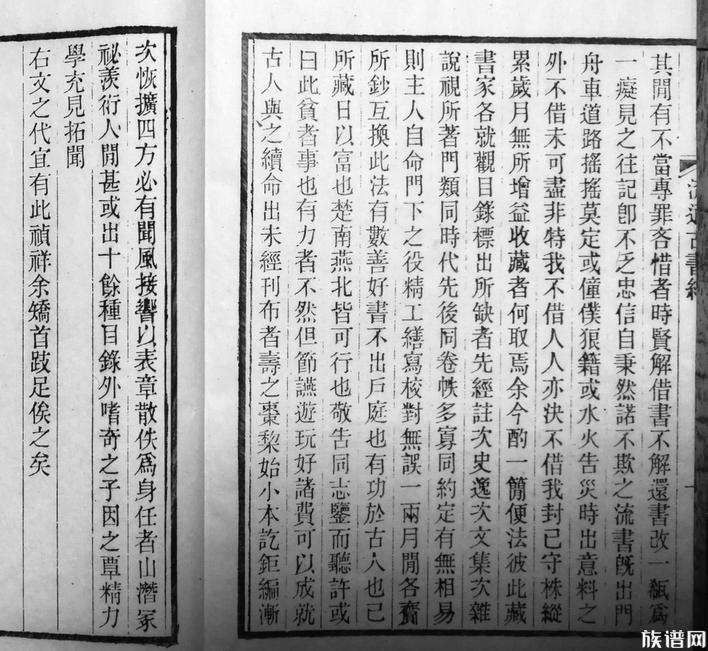 流通古書約
其閒有不當專罪吝惜者時賢解借書不解還書改一瓻爲
一癡見之往記卽不乏忠信自秉然諾不欺之流書旣出門
舟車道路搖搖莫定或僮僕狼籍或水火告災時出意料之
外不借未可盡非特我不借人人亦決不借我封己守株縱
累歲月無所增益收藏者何取焉余今酌一簡便法彼此藏
書家各就觀目錄標出所缺者先經註次史逸次文集次雜
說視所著門類同時代先後同卷帙多寡同約定有無相易
則主人自命門下之役精工繕寫校對無誤一兩月閒各齎
所鈔互換此法有數善好書不出戶庭也有功於古人也己
所藏日以富也楚南燕北皆可行也敬告同志鑒而聽許或
曰此貧者事也有力者不然但節讌遊玩好諸費可以成就
古人與之續命出未經刊布者壽之棗棃始小本訖鉅編漸
次恢擴四方必有聞風接響以表章散佚爲身任者山潛冢
祕羨衍人閒甚或出十餘種目錄外嗜奇之子因之覃精力
學充見拓聞
右文之代宜有此禎祥余矯首跂足俟之矣
族谱网